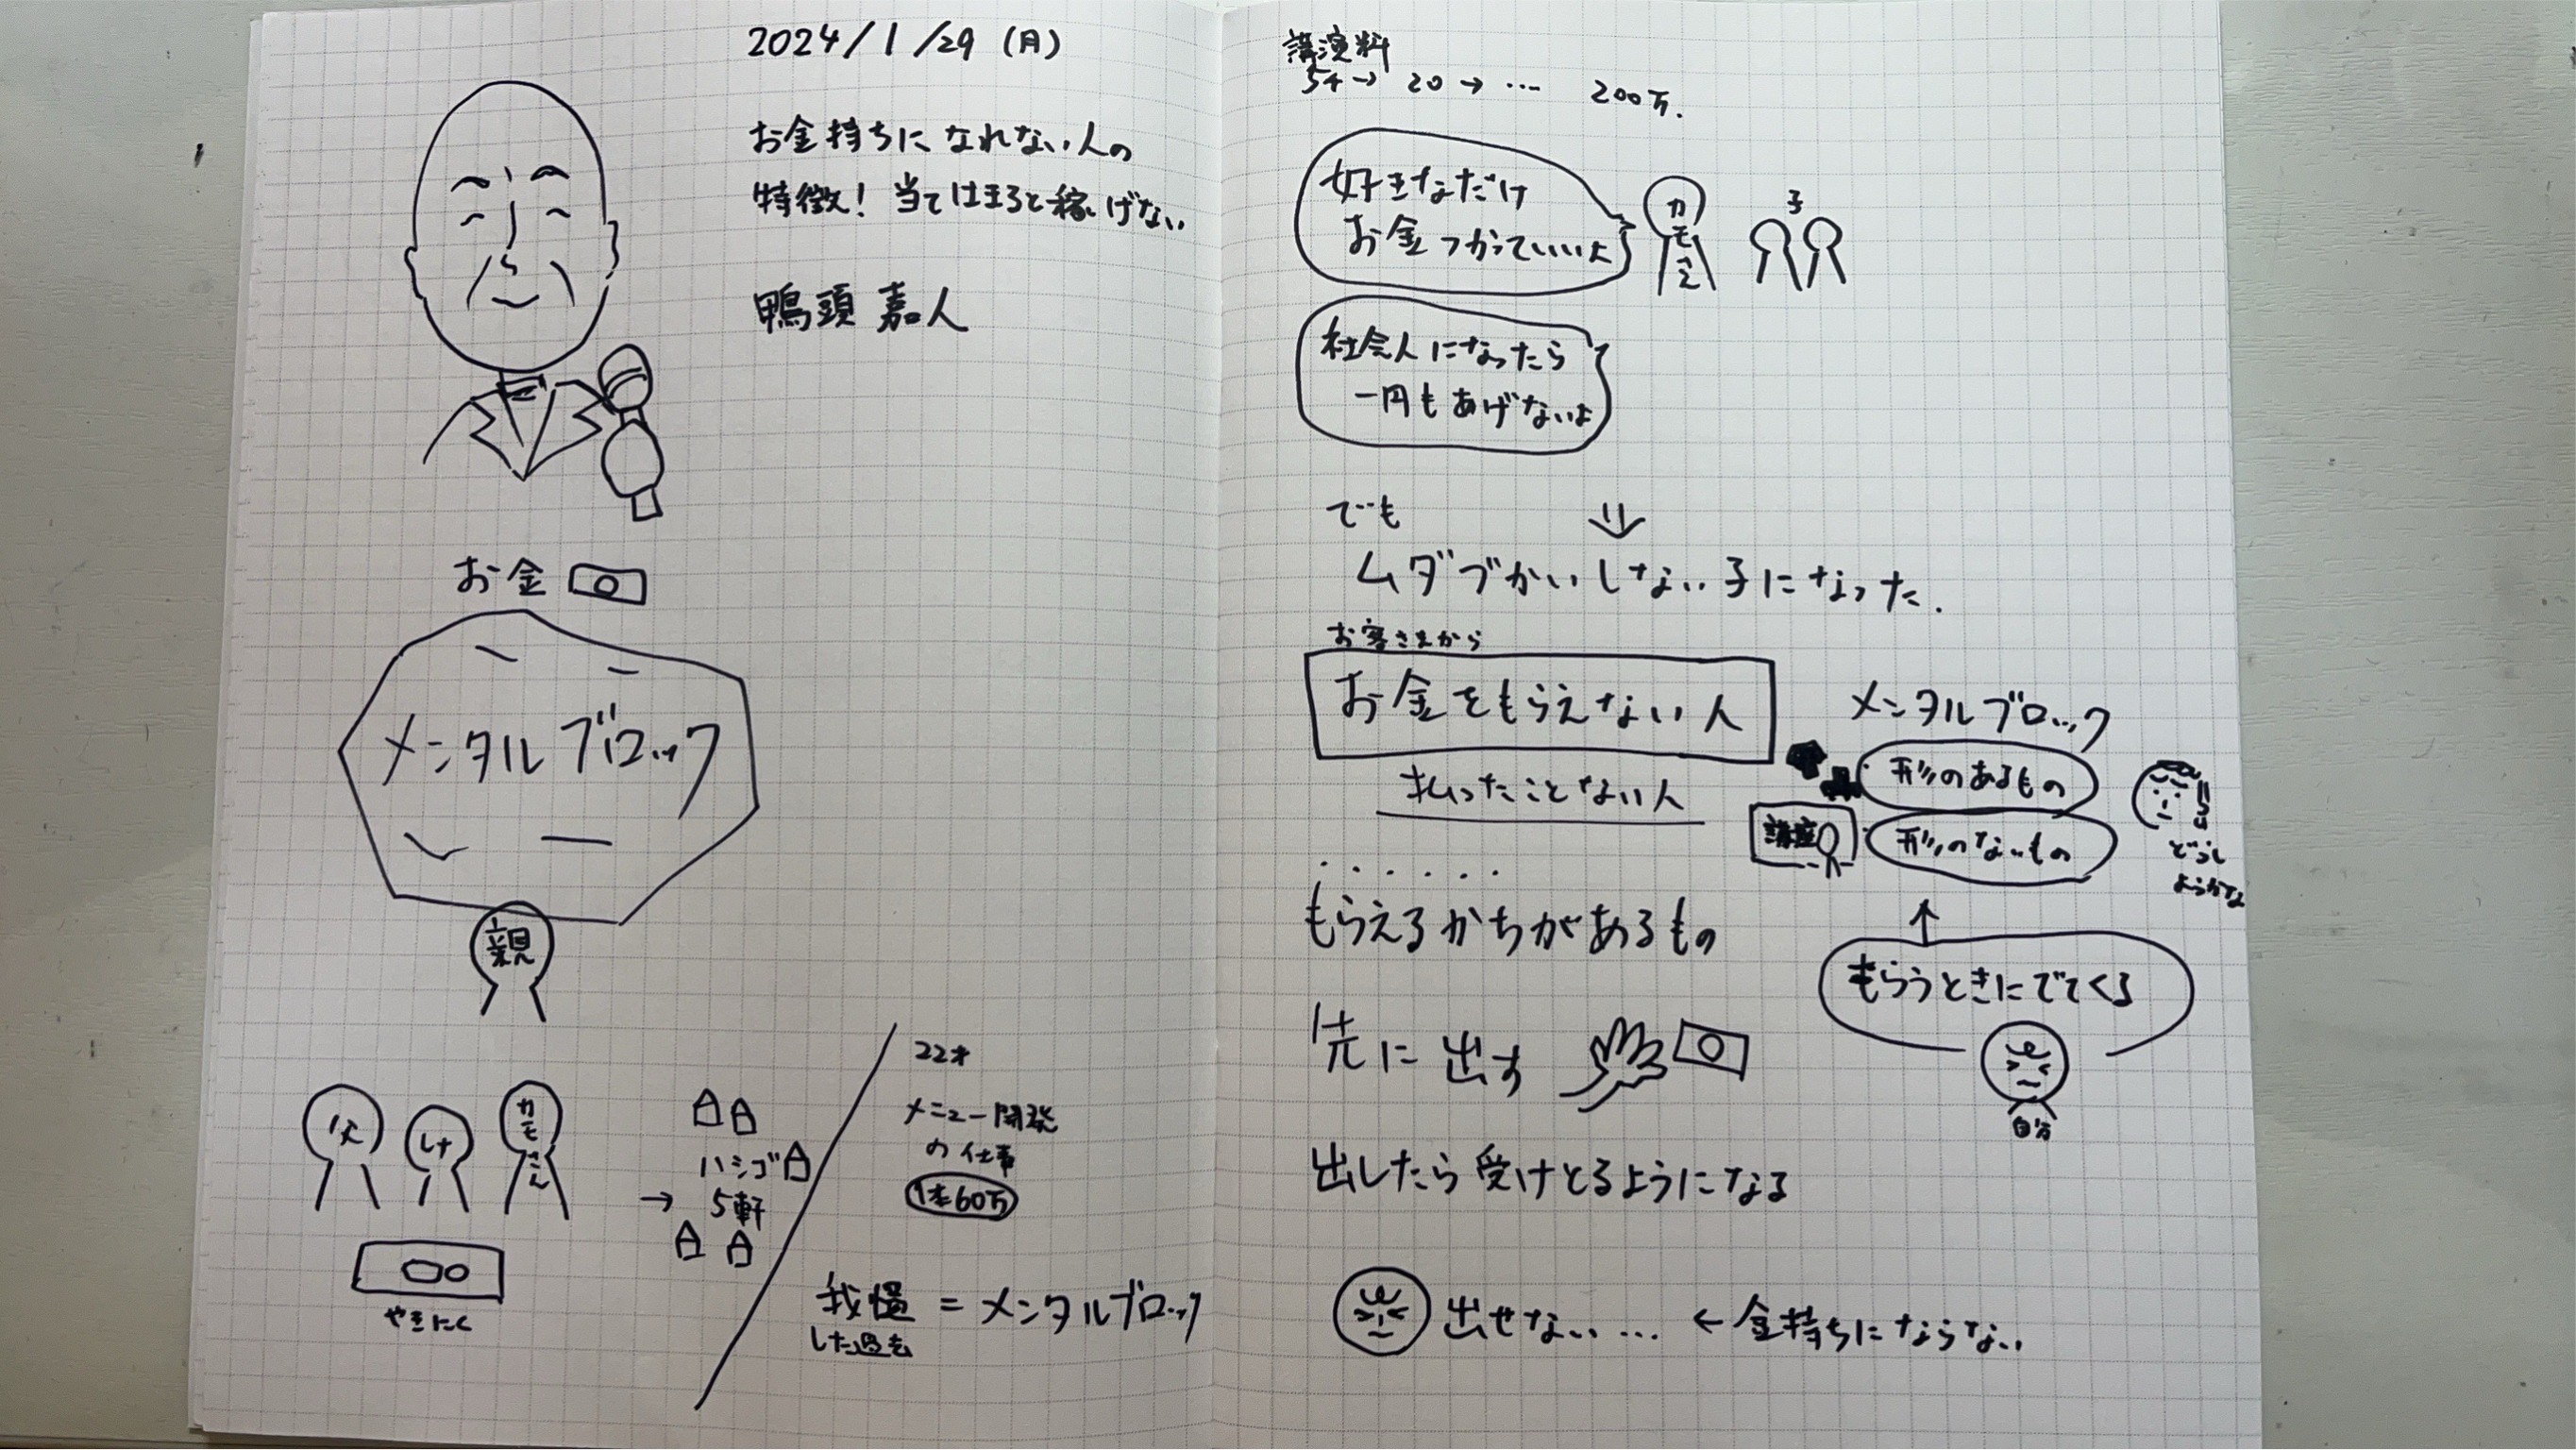 2024/1/29 (月)
お金持ちになれない人の
特徴！当てはまると稼げない
鴨頭 嘉人
お金
メンタルブロック
親
父
カモさん
やきにく
→
ハシゴ
5軒
22才
メニュー開発
の仕事
1本60万
我慢 = メンタルブロック
した過去
講演料
5千→ 20→ … 200万.
好きなだけ
お金つかっていいよ
カモさん
子
社会人になったら
一円もあげないよ
でも
ムダヅかいしない子になった.
お客さまから
お金をもらえない人
払ったことない人
メンタルブロック
形のあるもの
講座
形のないもの
どうし
ようかな
・・・・・・
もらえるかちがあるもの
もらうときにでてくる
自分
先に出す
出したら受けとるようになる
出せない… ← 金持ちにならない